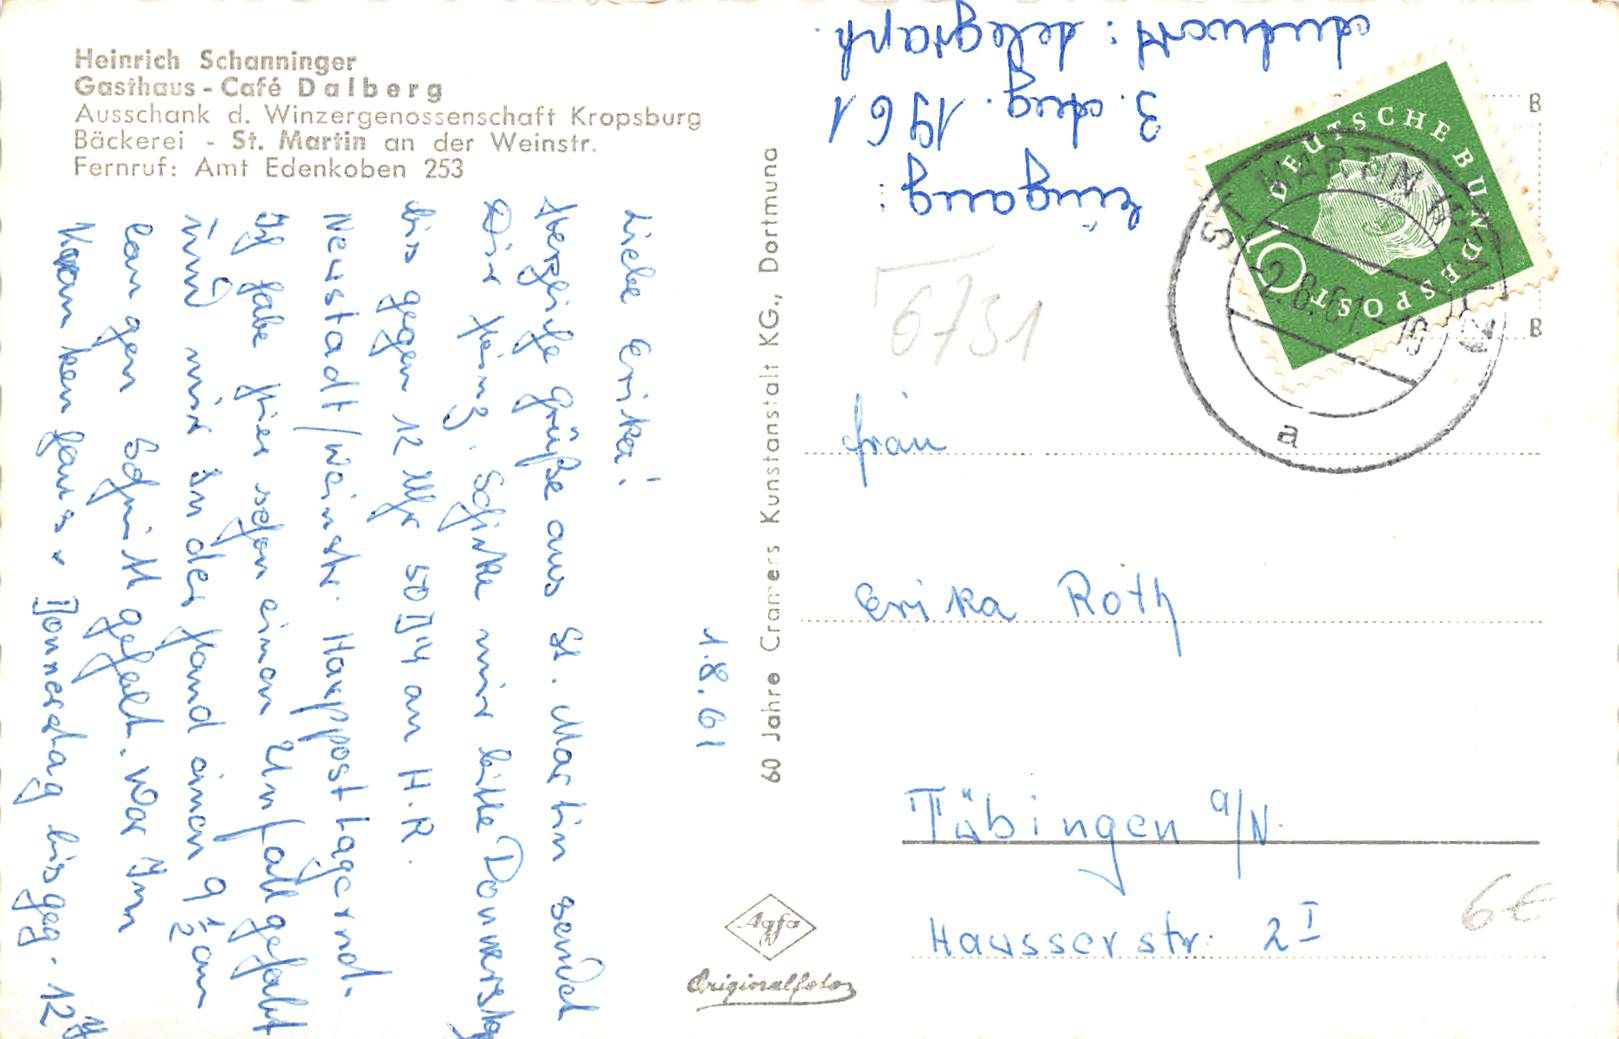 Heinrich Schanninger
Gasthaus - Café Dalberg
Ausschank d. Winzergenossenschaft Kropsburg
Bäckerei - St. Martin an der Weinstr.
Fernruf: Amt Edenkoben 253
1.8.61
Liebe Erika!
Herzliche Grüße aus St. Martin sendet
Dir Heinz. Schicke mir bitte Donnerstg
bis gegen 12 Uhr 50 DM an H.R.
Neustadt/Weinstr. Hauppostlagernd.
Ich habe hier schon einen Unfall gehabt
und mir in der Hand einen 9 1/2 cm
langen Schnitt geholt. War Im
Krankenhaus. Donnerstag bis geg. 12 H
60 Jahre Cramers Kunstanstalt KG., Dortmund
Agfa
Originalfoto
Eingang:
3. Aug. 1961
Antwort: telegraph.
DEUTSCHE BUNDESPOST
10
ST MARTIN
-2.8.61-18
a
B
B
6731
Frau
Erika Roth
Tübingen a/N.
Hausserstr. 2 I
6€